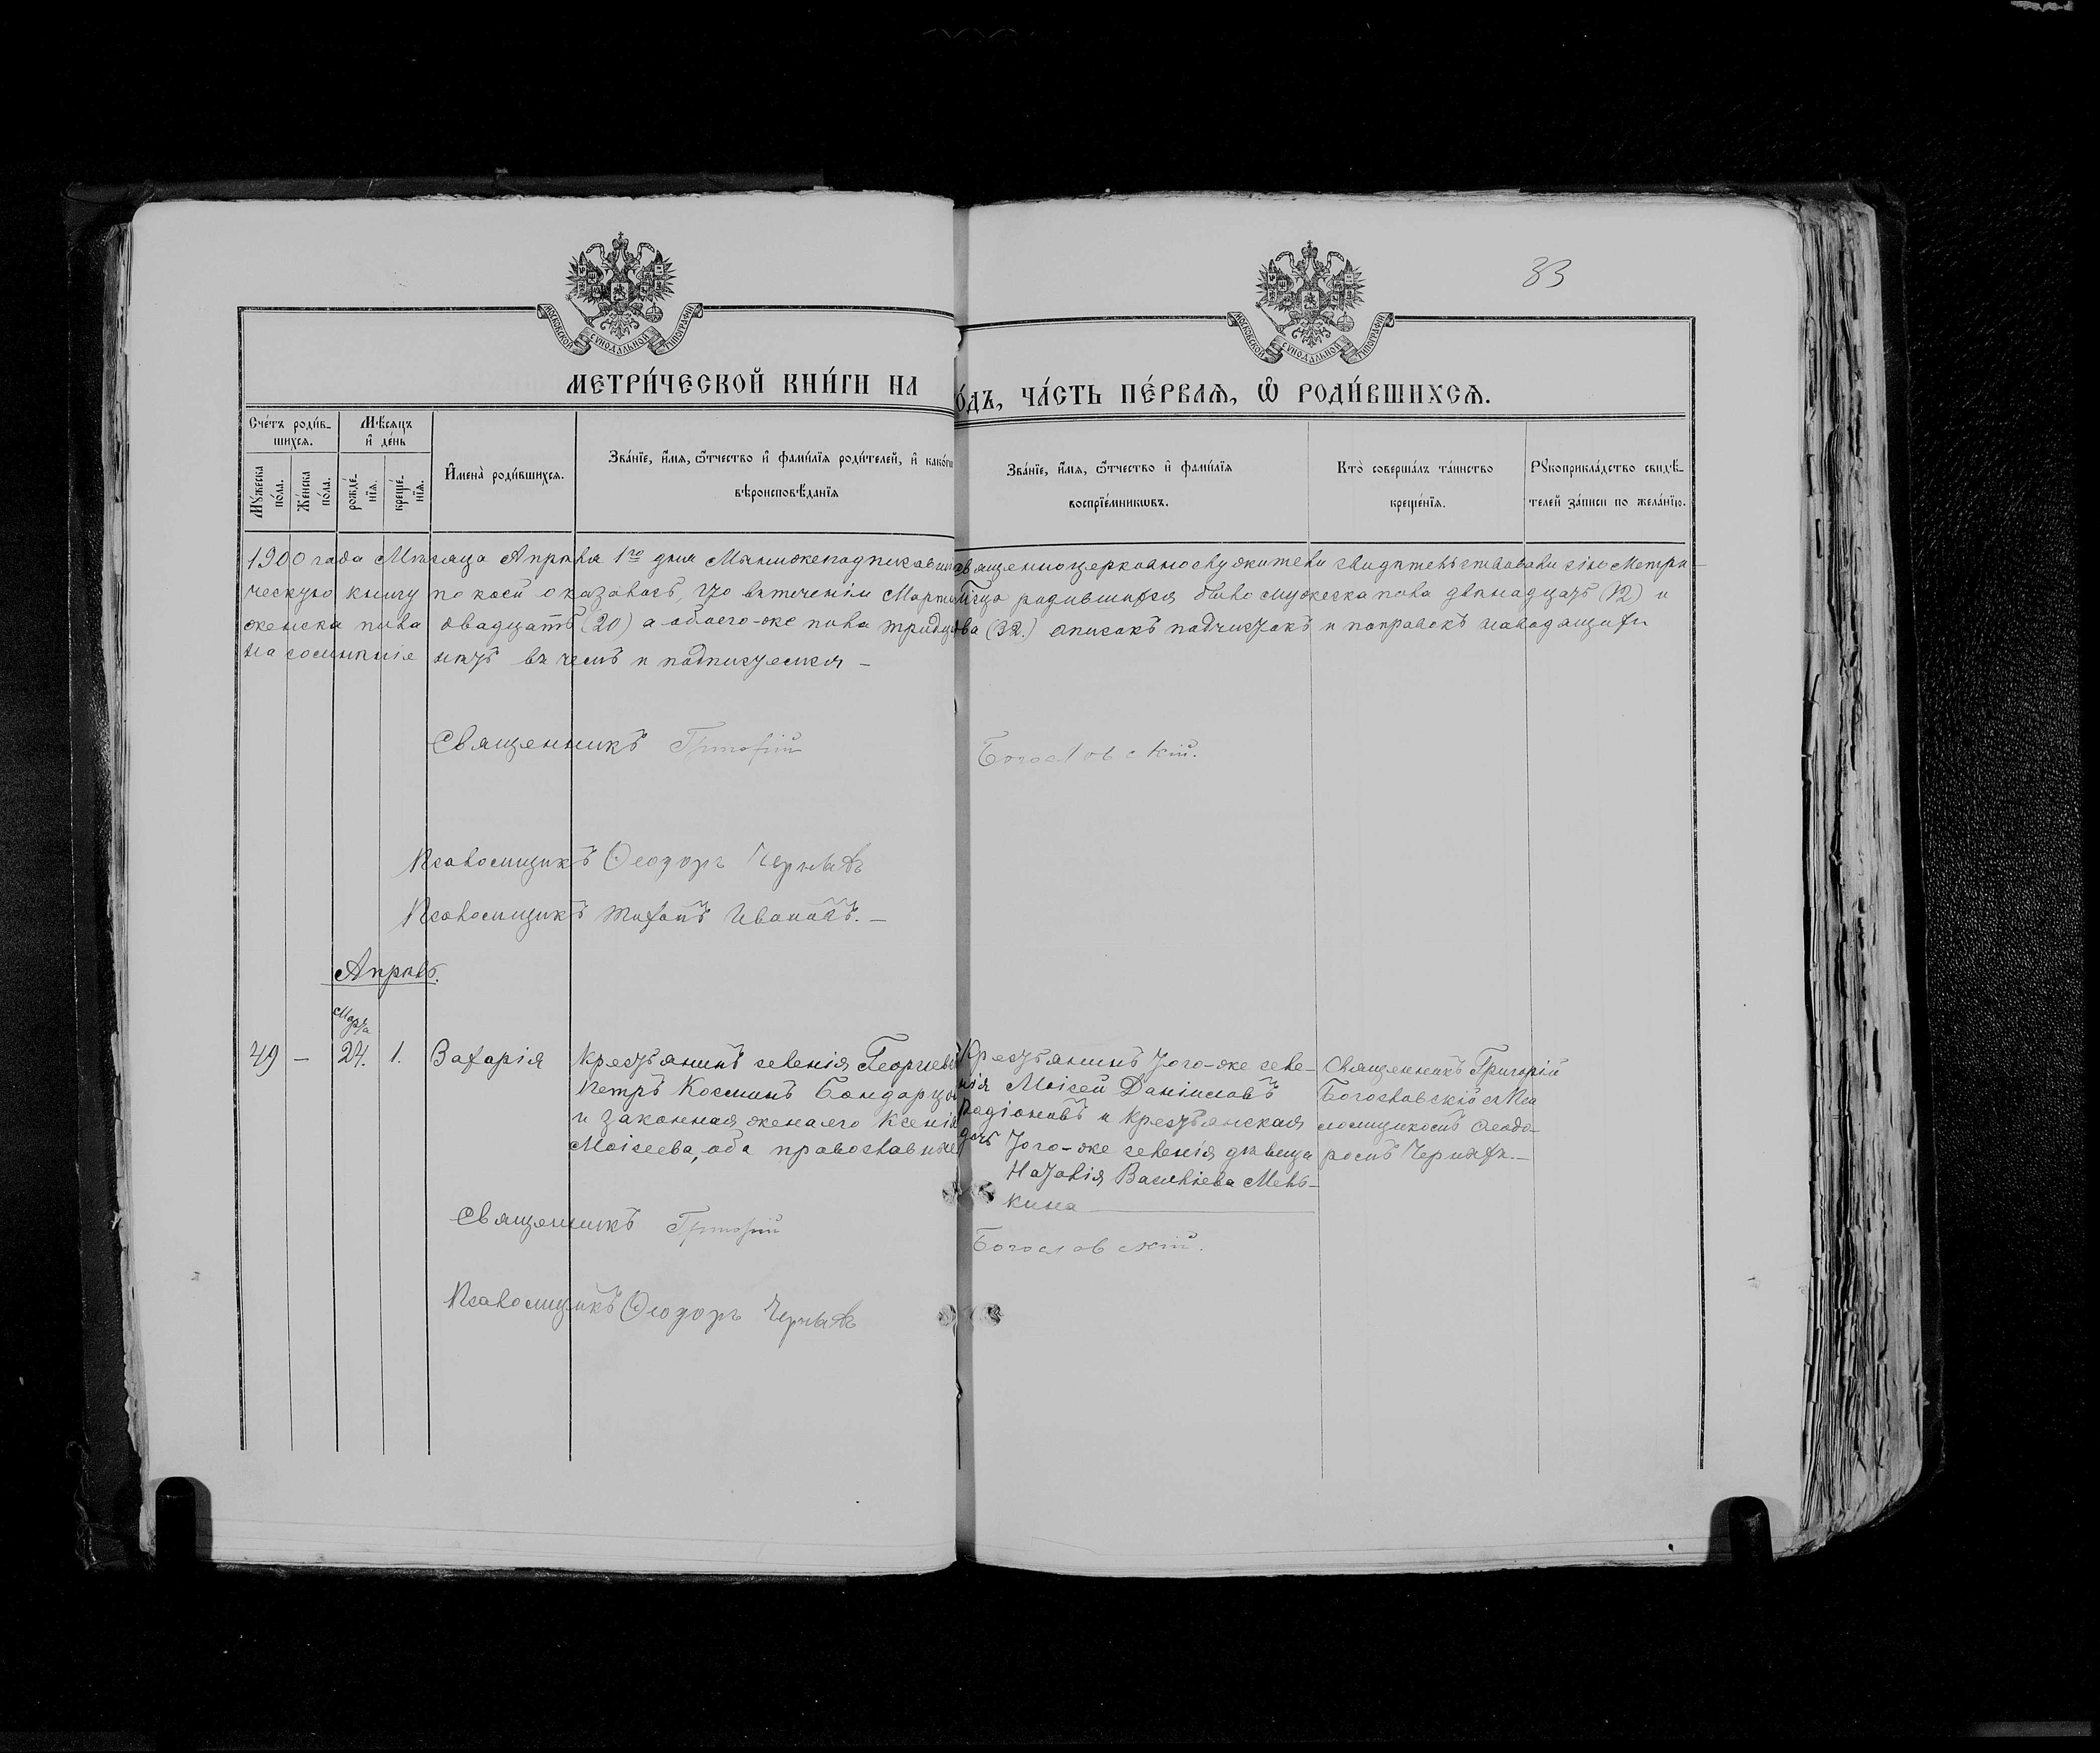 33
МОСКОВСКОЙ СѴНОДАЛЬНОЙ ТИПОГРАФІИ
МОСКОВСКОЙ СѴНОДАЛЬНОЙ ТИПОГРАФІИ
МЕТРИ́ЧЕСКОЙ КНИ́ГИ НА
О́ДЪ, ЧА́СТЬ ПЕ́РВАѦ, Ѡ҆ РОДИ́ВШИХСѦ.
Сче́тъ роди́в-
шихсѧ.
Мѣ́сѧцъ
и҆ де́нь
Мꙋ́жеска
по́ла.
Же́нска
по́ла.
рожде́-
нїѧ.
креще́-
нїѧ.
И҆мена̀ роди́вшихсѧ.
Зва́нїе, и҆́мѧ, ѻ҆́тчество и҆ фами́лїѧ роди́телей, и҆ како́гѡ
вѣроисповѣ́данїѧ
Зва́нїе, и҆́мѧ, ѻ҆́тчество и҆ фами́лїѧ
воспрїе́мникѡвъ.
Кто̀ соверша́лъ та́инство
креще́нїѧ.
Рꙋкоприкла́дство свидѣ́-
телей за́писи по жела́нїю.
1900 года Мѣсяца Апрѣля 1го дня Мы нижеподписавшіеся священноцерковнослужители свидѣтельствовали сію Метри-
ческую книгу по коей оказалось, что въ теченіи Марта мѣсяца родившихся было мужеска пола двѣнадцать (12) и
женска пола двадцать (20) а обоего-же пола тридцать два (32.) описокъ подчистокъ и поправокъ наводящихъ
на сомнѣніе нѣтъ въ чемъ и подписуемся –
Священникъ Григорій Богословскій.
Псаломщикъ Ѳеодоръ Черныхъ
Псаломщикъ Тихонъ Ивановъ. –
Апрѣль.
Марта
49 – 24. 1. Захарія
крестьянинъ селенія Георгіев
Петръ Космин Бондарцов
и законная жена его Ксенія
Моисеева, оба православные
Крестьянинъ того-же селе-
нія Моисей Даніиловъ
Радіоновъ и крестьянская
дочь того-же селенія дѣвица
Наталія Василіева Мель-
кина
Священникъ Григорій
Богословскій съ Пса
ломщикомъ Ѳеодо-
ромъ Черныхъ. –
Священникъ Григорій Богословскій.
Псаломщикъ Ѳеодоръ Черныхъ